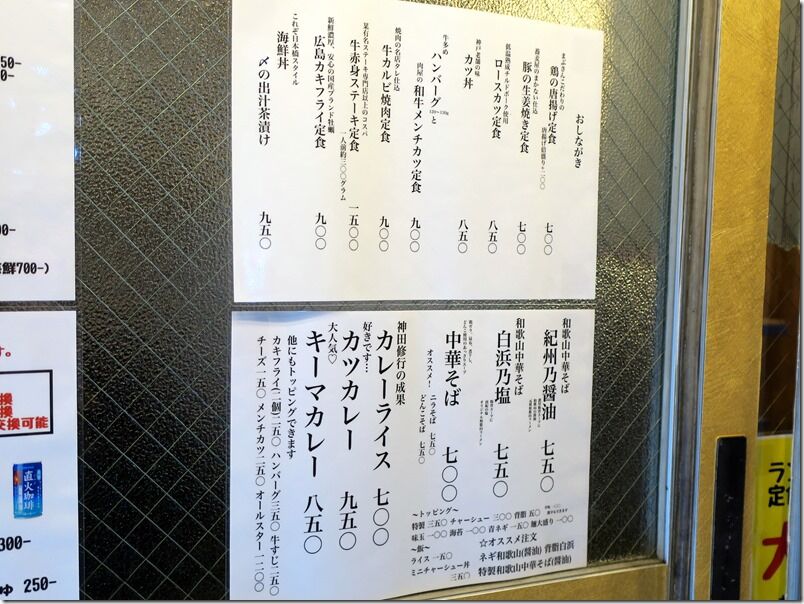 おしながき
まぶさんこだわりの
鶏の唐揚げ定食 七〇〇
唐揚げ倍盛り+二〇〇
蕎麦屋のまかない仕込
豚の生姜焼き定食 七〇〇
低温熟成チルドポーク使用
ロースカツ定食 八五〇
神戸老舗の味
カツ丼 八五〇
牛多め
ハンバーグと
肉屋の和牛メンチカツ定食 九〇〇
焼肉の名店タレ仕込
牛カルビ焼肉定食 九〇〇
某有名ステーキ専門店以上のコスパ
牛赤身ステーキ定食 一五〇〇
一人前約三〇〇グラム
新鮮濃厚、安心の国産ブランド牡蠣
広島カキフライ定食 九〇〇
これぞ日本橋スタイル
海鮮丼
〆の出汁茶漬け 九五〇
和歌山中華そば
紀州乃醤油 七五〇
和歌山中華そば
白浜乃塩 七五〇
中華そば 七〇〇
オススメ!
ニラそば 七五〇
どんこそば 七五〇
〜トッピング〜
特製 三五〇 チャーシュー 三〇〇 背脂 五〇
味玉 一〇〇 海苔 一〇〇 青ネギ 一五〇 麺大盛り 一〇〇
〜飯〜
ライス 一五〇
ミニチャーシュー丼 三五〇
☆オススメ注文
ネギ和歌山(醤油) 背脂白浜
特製和歌山中華そば(醤油)
神田修行の成果
カレーライス 七〇〇
好きです…
カツカレー 九五〇
大人気♡
キーマカレー 八五〇
他にもトッピングできます
カキフライ(二個)二五〇 ハンバーグ三五〇 牛すじ二五〇
チーズ一五〇 メンチカツ二五〇 オールスター一二〇〇
鮮700-)
す。
換
換
交換可能
直火珈琲
300-
ゆ 250-
ラン
定食